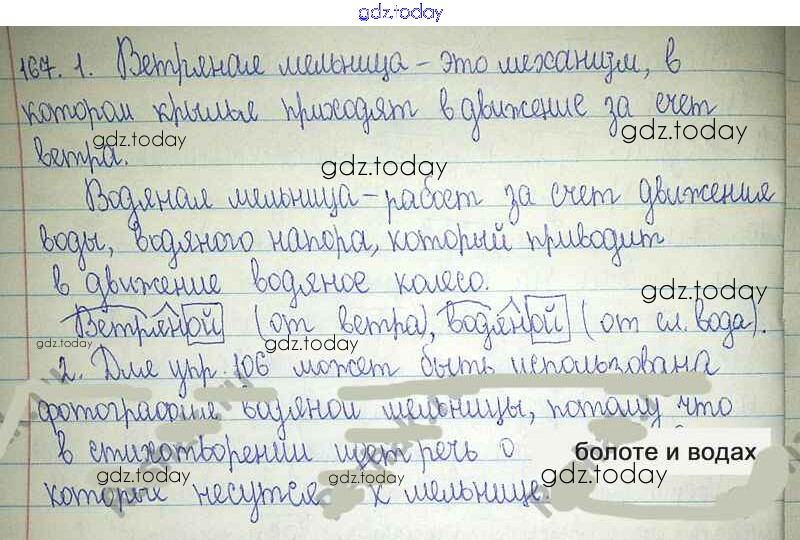 gdz.today
167. 1. Ветряная мельница - это механизм, в
котором крылья приходят в движение за счет
gdz.today gdz.today
ветра. gdz.today
Водяная мельница - рабоет за счет движения
воды, водяного напора, который приводит
в движение водяное колесо.
gdz.today
Ветряной (от ветра), водяной (от сл. вода).
gdz.today
2. Для упр. 106 может быть использована
фотография водяной мельницы, потому что
в стихотворении идет речь о болоте и водах
gdz.today gdz.today gdz.today
которые несутся к мельнице.